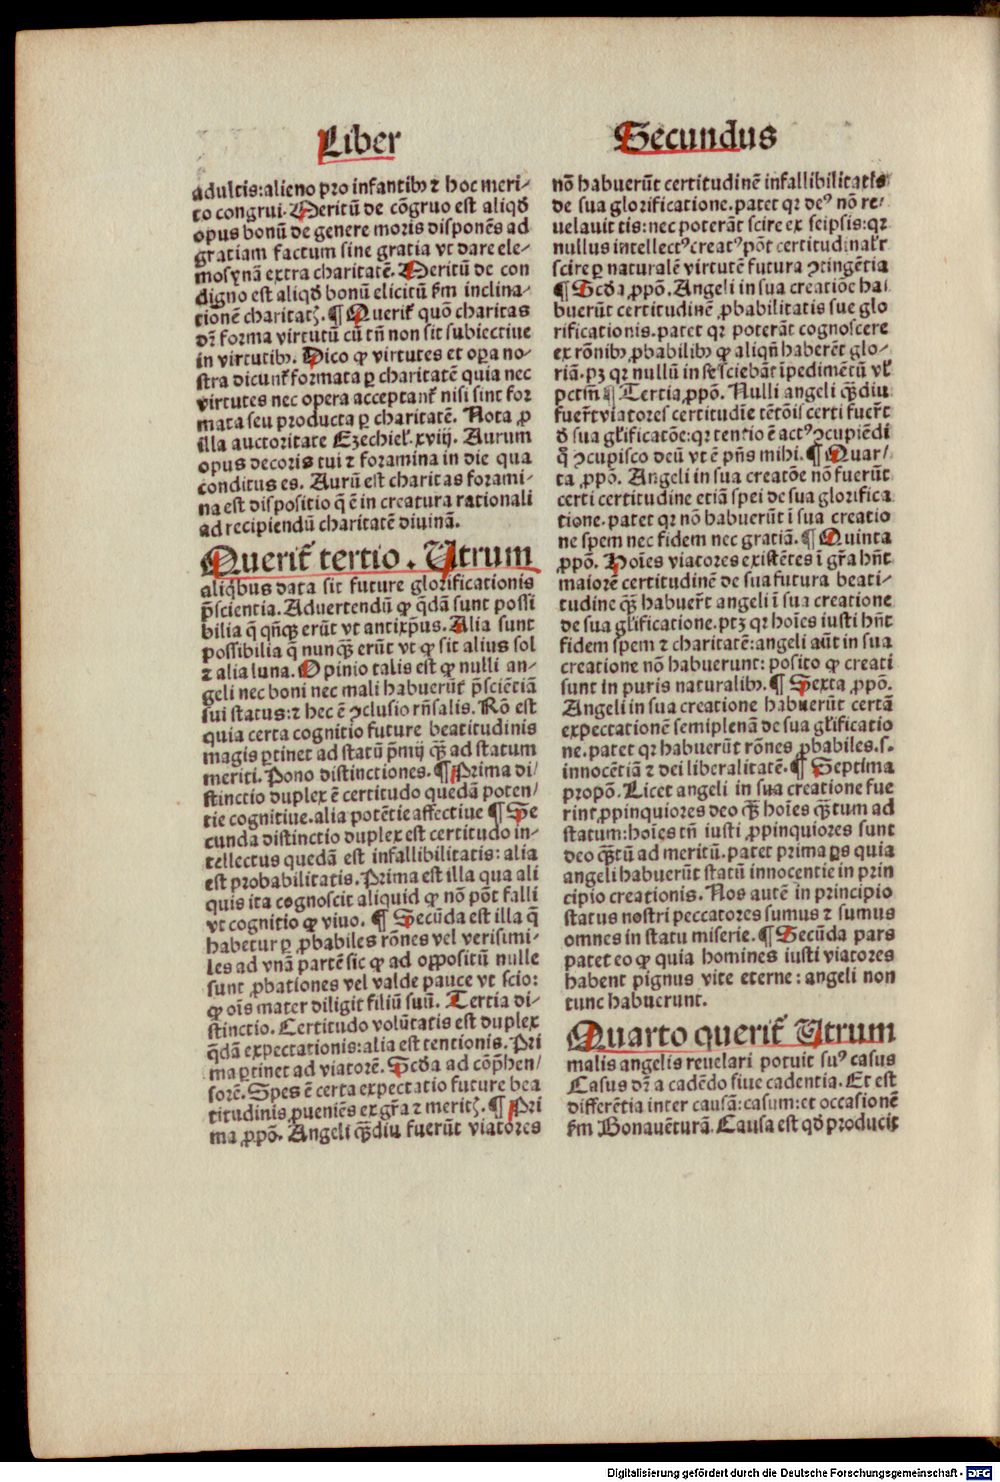 Liber
Secundus
adultis:alieno pro infantibꝫ ⁊ hoc meri-
to congrui. Meritū de cōgruo est aliqđ
opus bonū de genere moris disponēs ad
gratiam factum sine gratia vt dare ele-
mosynā extra charitatē. Meritū de con
digno est aliqđ bonū elicitū ẜm inclina-
tionē charitatꝭ. ¶ Querit᷑ quō charitas
dr̄ forma virtutū cū tn̄ non sit subiectiue
in virtutibꝫ. Dico ꝙ virtutes et oꝑa no-
stra dicunt᷑ formata ꝑ charitatē quia nec
virtutes nec opera acceptant᷑ nisi sint for
mata seu producta ꝑ charitatē. Nota ꝓ
illa auctoritate Ezechiel᷑. xviij. Aurum
opus decoris tui ⁊ foramina in die qua
conditus es. Aurū est charitas forami-
na est dispositio q̄ ē in creatura rationali
ad recipiendū charitatē diuinā.
Querit᷑ tertio. Vtrum
aliqbus data sit future glorificationis
p̄scientia. Aduertendū ꝙ q̄dā sunt possi
bilia q̄ qn̄qꝫ erūt vt antixp̄us. Alia sunt
possibilia q̄ nunqꝫ erūt vt ꝙ sit alius sol
⁊ alia luna. Opinio talis est ꝙ nulli an-
geli nec boni nec mali habuerūt p̄sciētiā
sui status:⁊ hec ē ꝯclusio rn̄salis. Rō est
quia certa cognitio future beatitudinis
magis ꝑtinet ad statū p̄mij qꝫ̄ ad statum
meriti. Pono distinctiones. ¶ Prima di/
stinctio duplex ē certitudo quedā poten/
tie cognitiue. alia potētie affectiue ¶ Se
cunda distinctio duplex est certitudo in-
tellectus quedā est infallibilitatis: alia
est probabilitatis. Prima est illa qua ali
quis ita cognoscit aliquid ꝙ nō pōt falli
vt cognitio ꝙ viuo. ¶ Secūda est illa q̄
habetur ꝑ ꝓbabiles rōnes vel verisimi-
les ad vnā partē sic ꝙ ad oppositū nulle
sunt ꝓbationes vel valde pauce vt scio:
ꝙ oīs mater diligit filiū suū. Tertia di-
stinctio. Certitudo volūtatis est duplex
q̄dā expectationis:alia est tentionis. Pri
ma ꝑtinet ad viatorē. Scđa ad cōp̄hen/
sorē. Spes ē certa expectatio future bea
titudinis ꝓueniēs ex gr̄a ⁊ meritꝭ. ¶ Pri
ma ꝓpō. Angeli qꝫ̄diu fuerūt viatores
nō habuerūt certitudinē infallibilitatis
de sua glorificatione. patet qꝛ deꝰ nō re/
uelauit tis: nec poterāt scire ex seipsis:qꝛ
nullus intellectꝰ creatꝰ pōt certitudinalr̄
scire ꝑ naturalē virtutē futura ꝯtingētia
¶ Scđa ꝓpō. Angeli in sua creatiōe ha
buerūt certitudinē ꝓbabilitatis sue glo
rificationis. patet qꝛ poterāt cognoscere
ex rōnibꝫ ꝓbabilibꝫ ꝙ aliqn̄ haberēt glo-
riā. pꝫ qꝛ nullū in se sciebāt īpedimētū vl᷑
pctm̄ ¶ Tertia ꝓpō. Nulli angeli qꝫ̄diu
fuer̄t viatores certitudīe tētōis certi fuer̄t
đ sua gl᷑ificatōe:qꝛ tentio ē actꝰ ꝯcupiēdi
q̄ ꝯcupisco deū vt ē pn̄s mihi. ¶ Quar/
ta ꝓpō. Angeli in sua creatōe nō fuerūt
certi certitudine etiā spei de sua glorifica
tione. patet qꝛ nō habuerūt ī sua creatio
ne spem nec fidem nec gratiā. ¶ Quinta
ꝓpō. Hoīes viatores existētes ī gr̄a hn̄t
maiorē certitudinē de sua futura beati-
tudine qꝫ̄ habuer̄t angeli ī sua creatione
de sua gl᷑ificatione. ptꝫ qꝛ hoīes iusti hn̄t
fidem spem ⁊ charitatē:angeli aūt in sua
creatione nō habuerunt: posito ꝙ creati
sunt in puris naturalibꝫ. ¶ Sexta ꝓpō.
Angeli in sua creatione habuerūt certā
expectationē semiplenā de sua gl᷑ificatio
ne. patet qꝛ habuerūt rōnes ꝓbabiles. s.
innocētiā ⁊ dei liberalitatē. ¶ Septima
propō. Licet angeli in sua creatione fue
rint ꝓpinquiores deo qꝫ̄ hoīes qꝫ̄tum ad
statum:hoīes tn̄ iusti ꝓpinquiores sunt
deo qꝫ̄tū ad meritū. patet prima ꝑs quia
angeli habuerūt statū innocentie in prin
cipio creationis. Nos autē in principio
status nostri peccatores sumus ⁊ sumus
omnes in statu miserie. ¶ Secūda pars
patet eo ꝙ quia homines iusti viatores
habent pignus vite eterne: angeli non
tunc habuerunt.
Quarto querit᷑ Vtrum
malis angelis reuelari potuit suꝰ casus
Casus dr̄ a cadēdo siue cadentia. Et est
differētia inter causā: casum: et occasionē
ẜm Bonauēturā. Causa est qđ producit
Digitalisierung gefördert durch die Deutsche Forschungsgemeinschaft - DFG